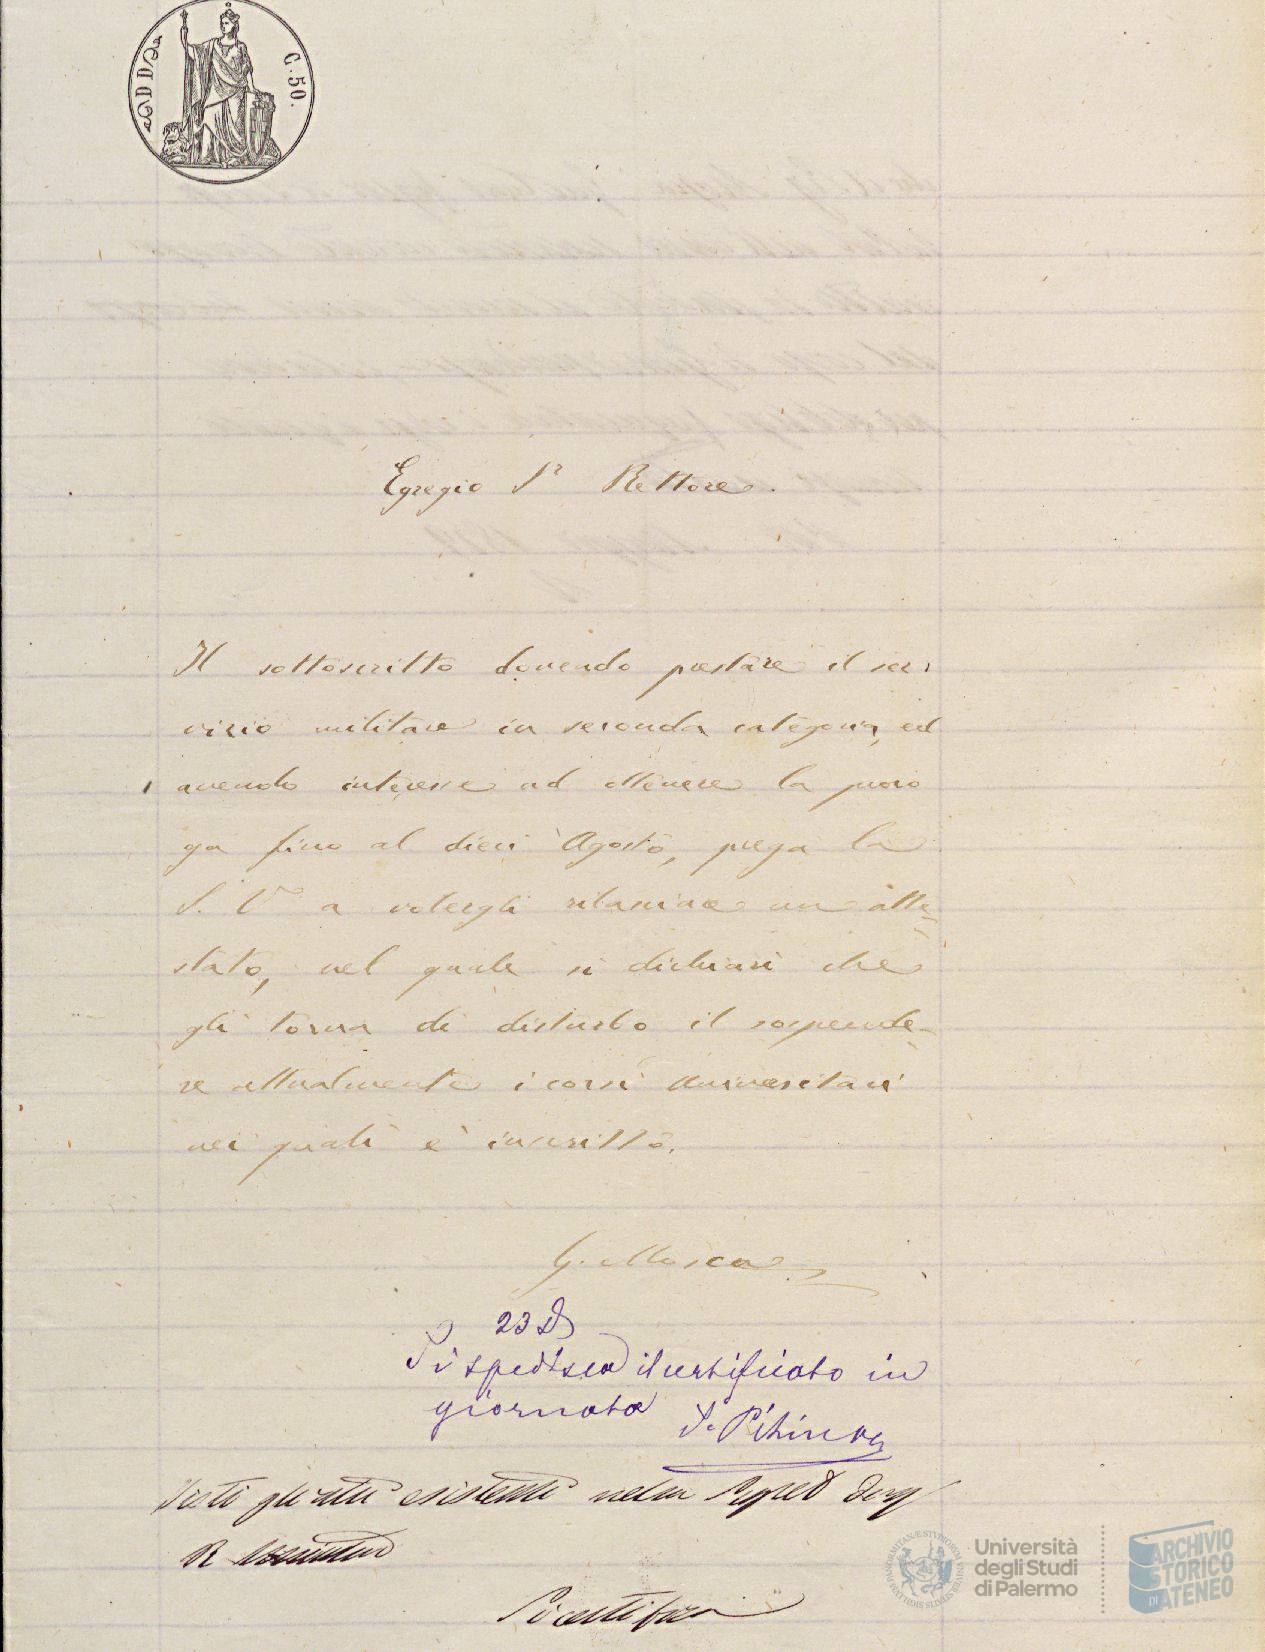 C. 50.
Egregio Sr Rettore.
Il sottoscritto dovendo prestare il ser-
vizio militare in seconda categoria, ed
avendo interesse ad ottenere la proro
ga fino al dieci Agosto, prega la
S. V. a volergli rilasciare un atte-
stato, nel quale si dichiari che
gli torna di disturbo il sospende-
re attualmente i corsi universitari
nei quali è inscritto.
G. Mosca
23
Si spedisca il certificato in
giornata
Visti gli atti esistenti nella
R
Si certifica
Università
degli Studi
di Palermo
ARCHIVIO
STORICO
DI ATENEO